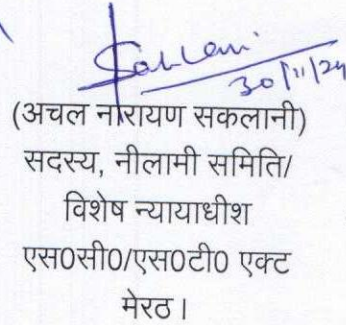 Saklani
30/11/24
(अचल नारायण सकलानी)
सदस्य, नीलामी समिति/
विशेष न्यायाधीश
एस0सी0/एस0टी0 एक्ट
मेरठ।